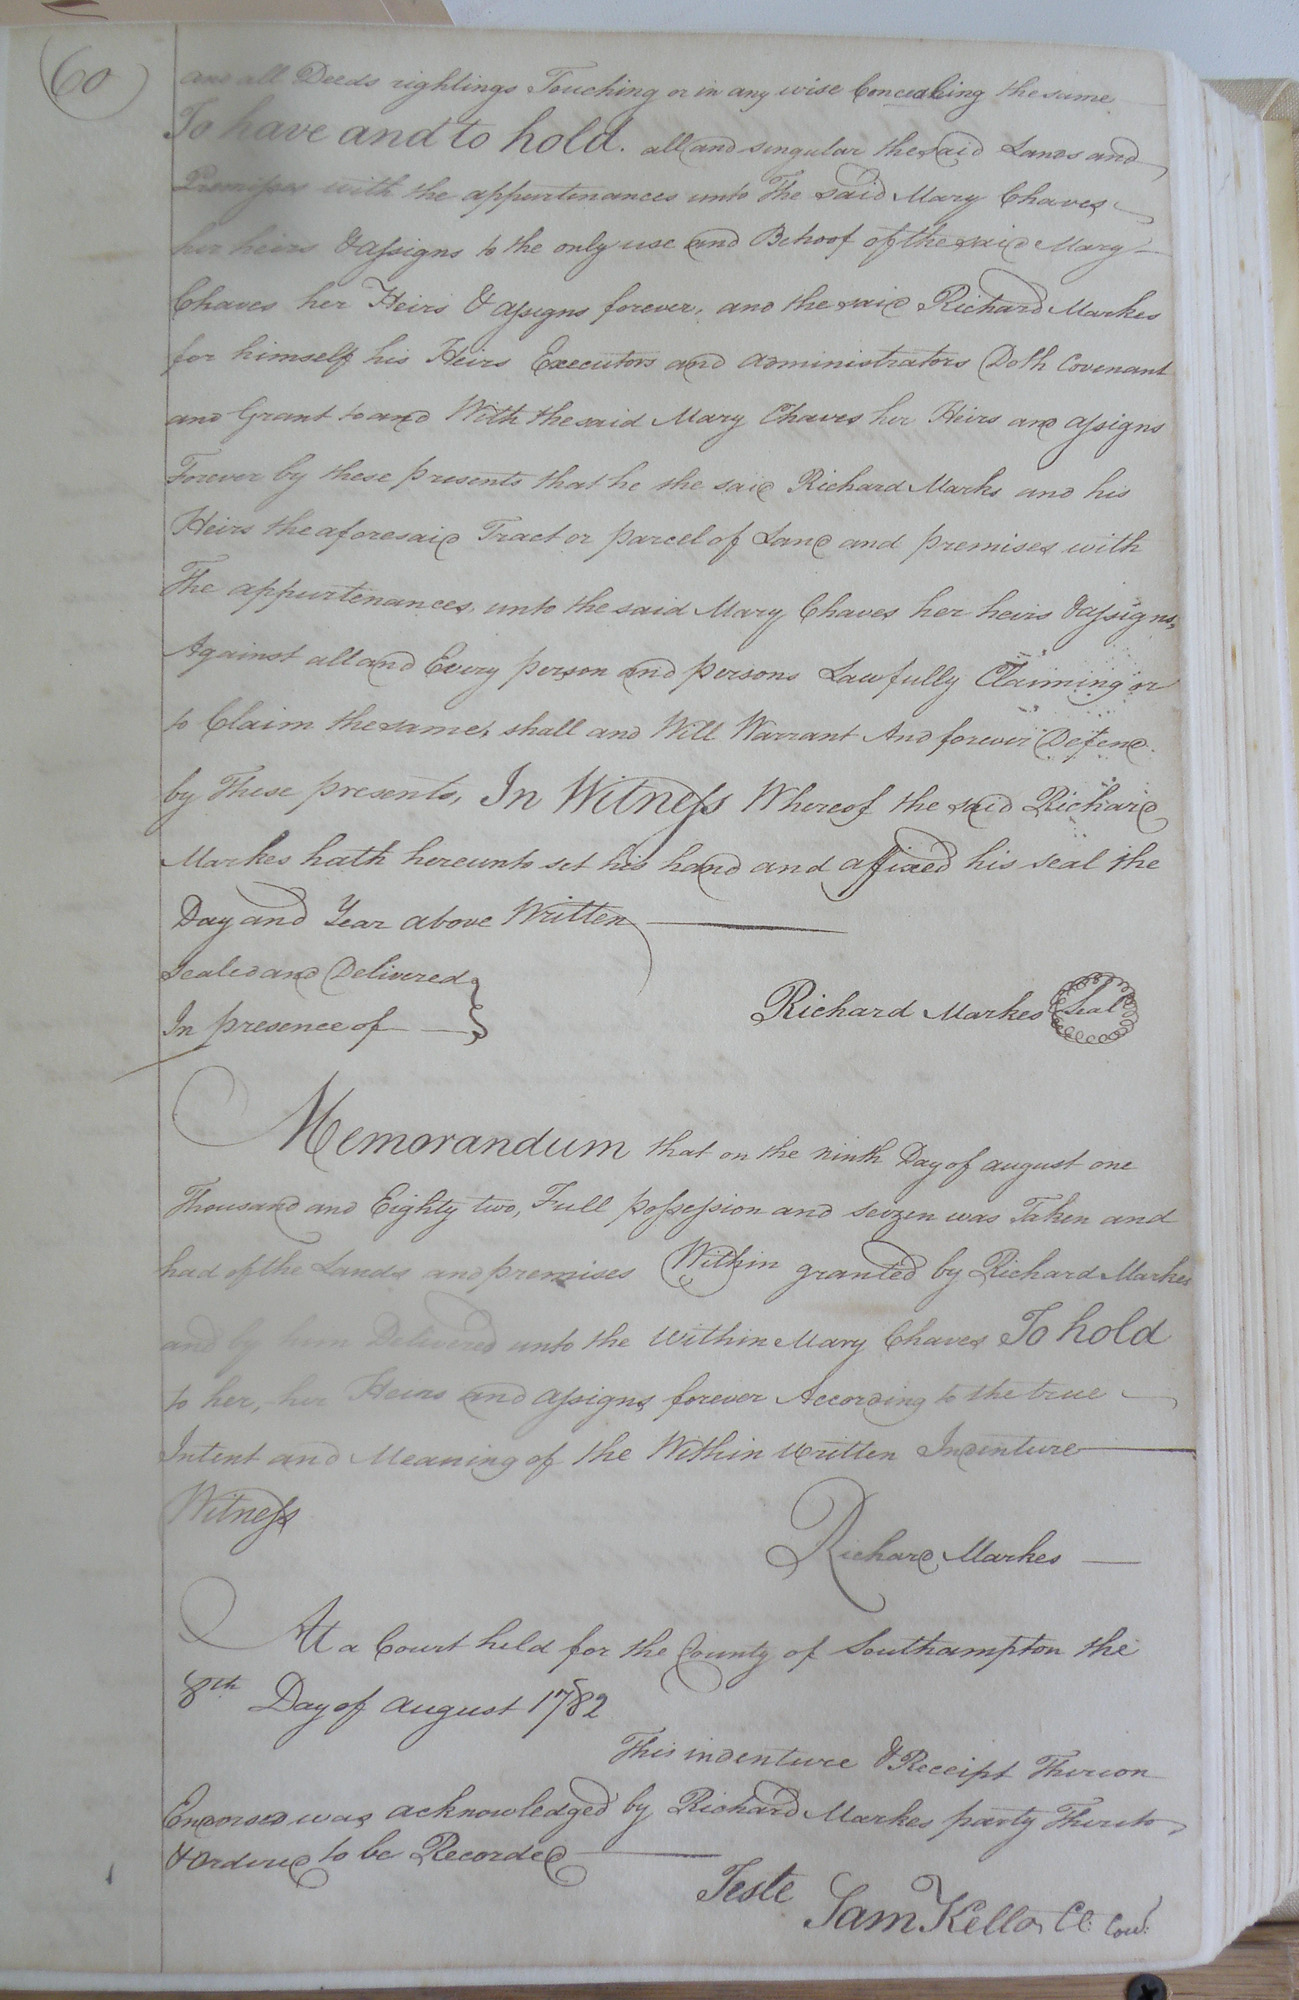 60
and all Deeds rightings Touching or in any wise Concealing the same
To have and to hold. all and singular the said Lands and
Premises with the appurtenances unto The said Mary Chaves
her heirs & assigns to the only use and Behoof of the said Mary
Chaves her Heirs & assigns forever, and the said Richard Markes
for himself his Heirs Executors and administrators Doth Covenant
and Grant to and With the said Mary Chaves her Heirs and assigns
Forever by these presents that he the said Richard Marks and his
Heirs the aforesaid Tract or parcel of Land and premises with
The appurtenances, unto the said Mary Chaves her heirs & assigns,
Against all and Every person and persons Lawfully Claiming or
to Claim the same, shall and Will Warrant And forever Defend.
by These presents, In Witness Whereof the said Richard
Markes hath hereunto set his hand and affixed his seal the
Day and Year above Written
Sealed and Delivered
In presence of
Richard Markes Seal
Memorandum that on the ninth Day of august one
Thousand and Eighty two, Full possession and seizen was Taken and
had of the Lands and premises Within granted by Richard Markes
and by him Delivered unto the Within Mary Chaves To hold
to her, her Heirs and assigns forever According to the true
Intent and Meaning of the Within written Indenture
Witness
Richard Markes
At a Court held for the County of Southampton the
8th Day of august 1782
This indenture & Receipt Thereon
Endorsed was acknowledged by Richard Markes party Thereto,
& Ordered to be Recorded
Teste
Sam Kello Cl: Cou: